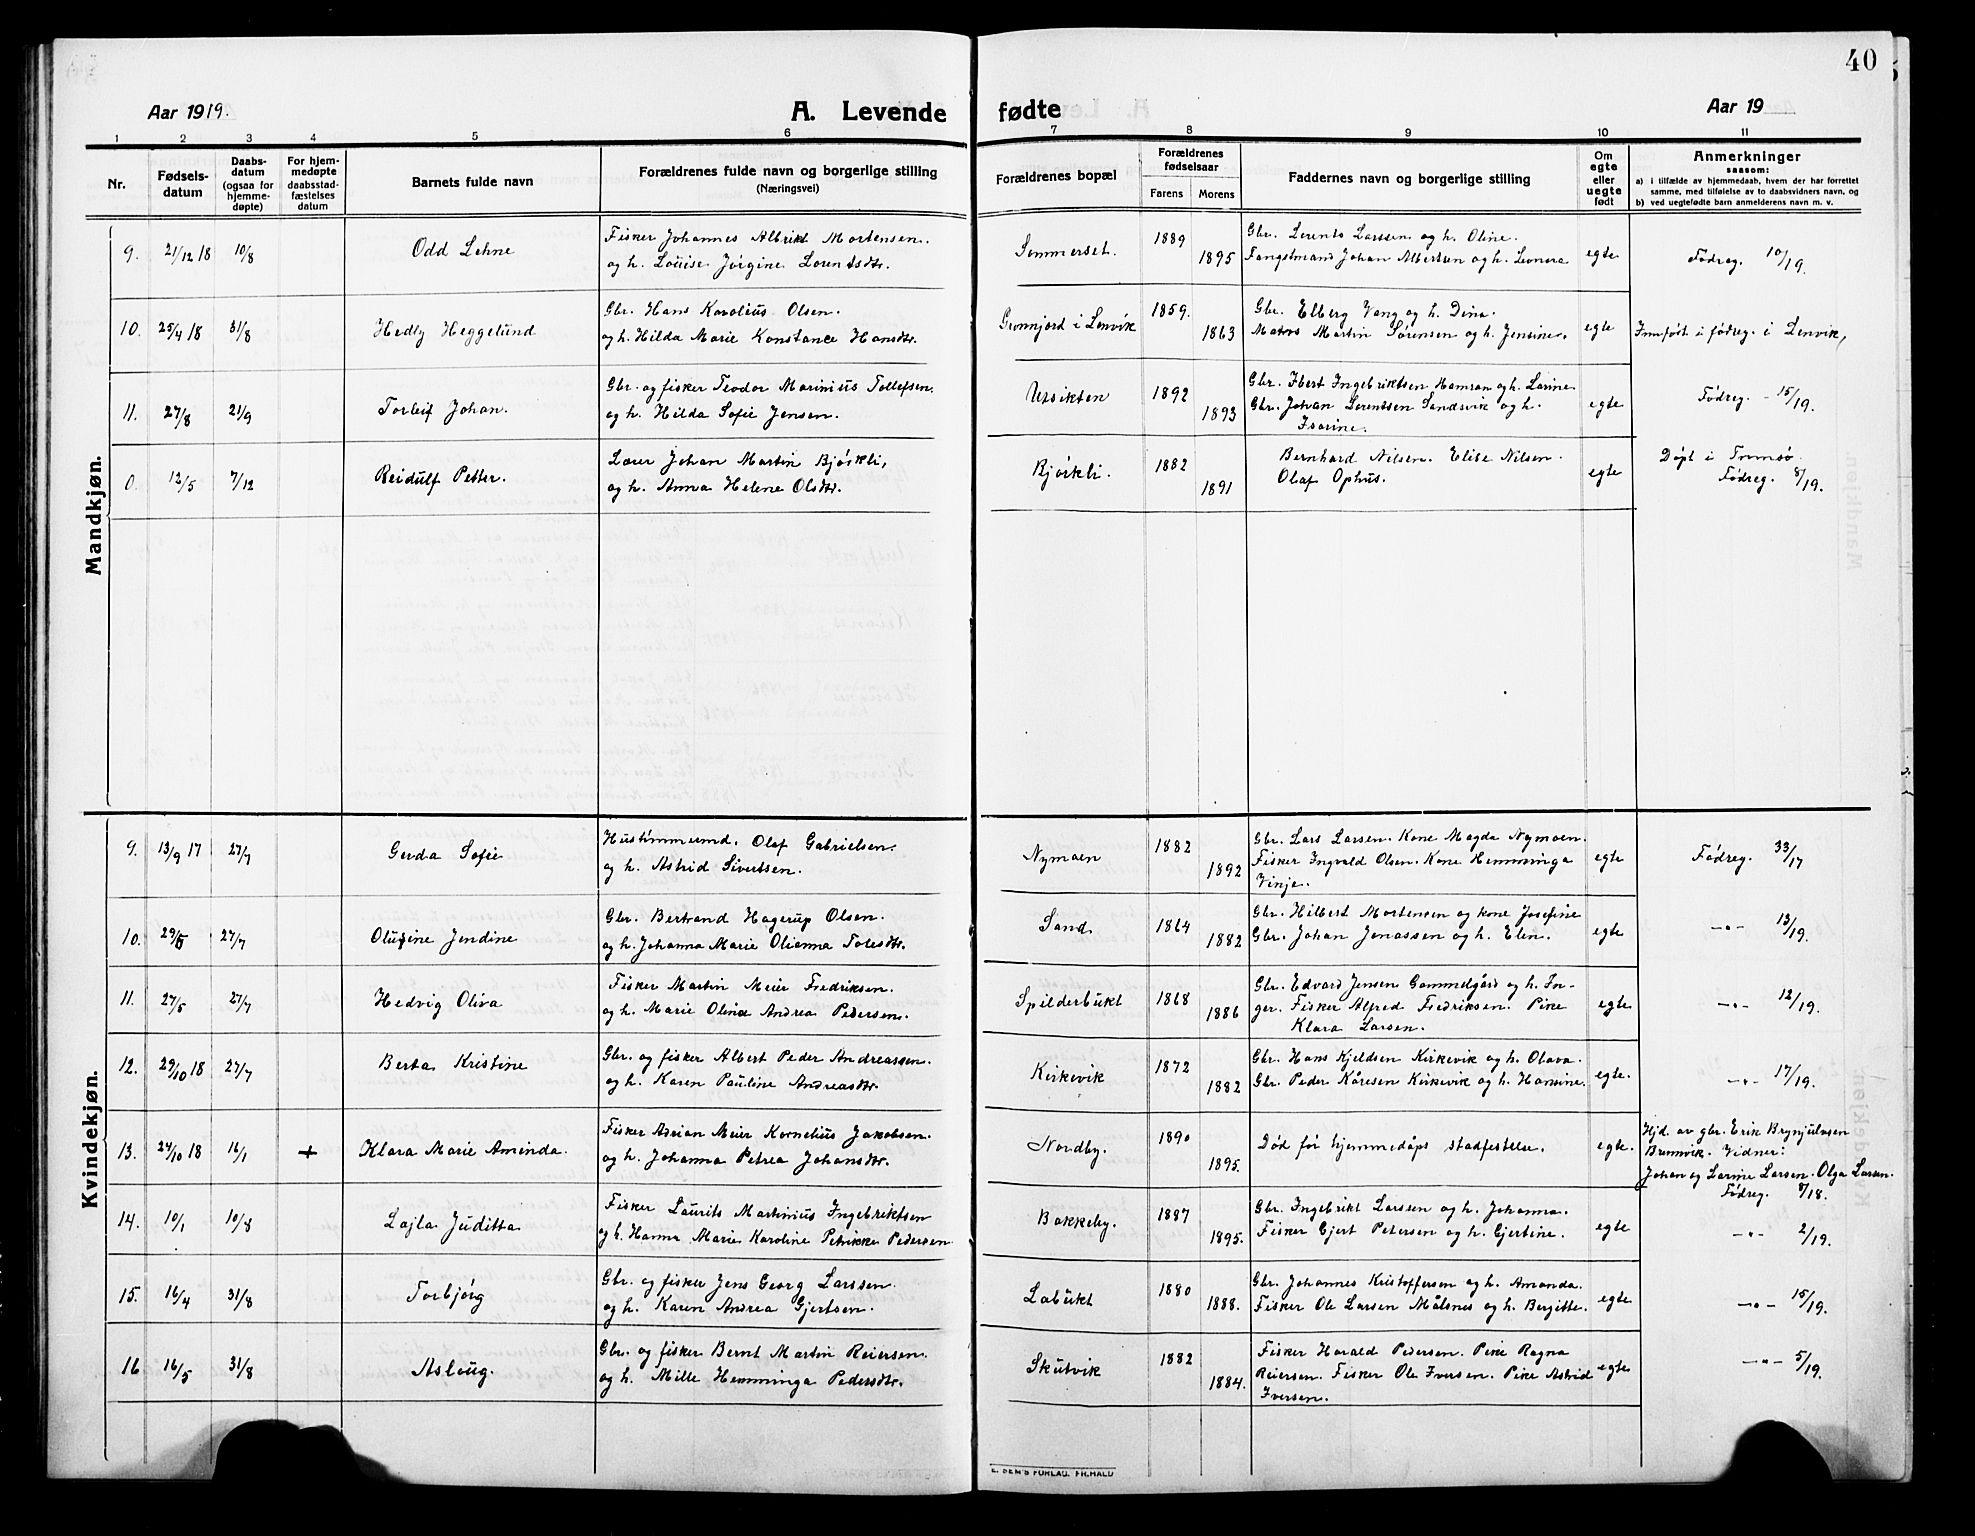 40
Aar 1919.
A. Levende fødte
Aar 19
1 2 3 4 5 6 7 8 9 10 11
Nr.
Fødsels-
datum
Daabs-
datum
(ogsaa for
hjemme-
døpte)
For hjem-
medøpte
daabsstad-
fæstelses
datum
Barnets fulde navn
Forældrenes fulde navn og borgerlige stilling
(Næringsvei)
Forældrenes bopæl
Forældrenes
fødselsaar
Farens Morens
Faddernes navn og borgerlige stilling
Om
egte
eller
uegte
født
Anmerkninger
saasom:
a) i tilfælde av hjemmedaab, hvem der har forrettet
samme, med tilføielse av to daabsvidners navn, og
b) ved uegtefødte barn anmelderens navn m. v.
Mandkjøn.
9. 21/12 18 10/8 Odd Lehne
Fisker Johannes Albrikt Mortensen.
og h. Louise Jørgine Lorentsdtr.
Sommerset. 1889 1895
Gbr. Lorents Larssen og h. Oline.
Fangstmand Johan Albertsen og h. Leonora
egte Fødreg. 10/19.
10. 25/4 18 31/8 Hedly Heggelund
Gbr. Hans Karolius Olsen.
og h. Hilda Marie Konstance Hansdtr.
Grønnjord i Lenvik 1859. 1863
Gbr. Elberg Vang og h. Dina.
Matros Martin Sørensen og h. Jensine.
egte Innført i fødreg. i Lenvik,
11. 27/8 21/9 Torleif Johan.
Gbr. og fisker Teodor Marinius Tollefsen.
og h. Hilda Sofie Jensen.
Utsikten 1892 1893
Gbr. Ibert Ingebriktsen Hamran og h. Larine
Gbr. Johan Lorentsen Sandsvik og h.
Isarine.
egte Fødreg. - 15/19.
0. 12/5 7/12 Reidulf Petter.
Lærer Johan Martin Bjørkli,
og h. Anna Helene Olsdtr.
Bjørkli. 1882 1891
Bernhard Nilsen. Elise Nilsen.
Olaf Ophus.
egte
Døpt i Tromsø.
Fødreg. 8/19.
Kvindekjøn.
9. 13/9 17 27/7 Gerda Sofie
Hustømmermd. Olaf Gabrielsen.
og h. Astrid Sivertsen.
Nymoen 1882 1892
Gbr. Lars Larsen. Kone Magda Nymoen.
Fisker Ingvald Olsen. Kone Hemminga
Vinje.
egte Fødreg. 33/17
10. 29/5 27/7 Olufine Jendine
Gbr. Bertrand Hagerup Olsen.
og h. Johanna Marie Olianna Tolesdtr.
Sand. 1864 1882
Gbr. Hilbert Mortensen og kone Josefine
Gbr. Johan Jonassen og h. Elen.
egte —"— 13/19.
11. 27/5 27/7 Hedvig Oliva
Fisker Martin Meier Fredriksen.
og h. Marie Olina Andrea Pedersen.
Spilderbukt 1868 1886
Gbr. Edvard Jensen Gammelgård og h. In-
ger. Fisker Alfred Fredriksen. Pike
Klara Larsen.
egte —"— 12/19.
12. 29/10 18 27/7 Berta Kristine
Gbr. og fisker Albert Peder Andreassen.
og h. Karen Pauline Andreasdtr.
Kirkevik 1872 1882
Gbr. Hans Kjeldsen Kirkevik og h. Olava.
Gbr. Peder Kåresen Kirkevik og h. Hansine.
egte. —"— 17/19.
13. 24/10 18 16/1 + Klara Marie Aminda.
Fisker Adrian Meier Kornelius Jakobsen.
og h. Johanna Petrea Johansdtr.
Nordby. 1890 1895.
Død før hjemmedåps stadfestelse.
egte.
Hjd. av gbr. Erik Brynjulvsen
Brennvik. Vidner:
Johan og Larine Larsen. Olga Larsen.
Fødreg. 8/18.
14. 10/1 10/8 Lajla Juditta
Fisker Laurits Martinius Ingebriktsen
og h. Hanna Marie Karoline Petrikke Pedersen.
Bakkeby. 1887 1895.
Gbr. Ingebrikt Larssen og h. Johanna.
Fisker Gjert Petersen og h. Gjertine.
egte —"— 2/19.
15. 16/4 31/8 Torbjørg
Gbr. og fisker Jens Georg Larssen.
og h. Karen Andrea Gjertsen.
Løbukt 1880 1888.
Gbr. Johannes Kristoffersen og h. Amanda.
Fisker Ole Larsen Målsnes og h. Bergitte.
egte —"— 15/19.
16 16/5 31/8 Aslaug.
Gbr. og fisker Bernt Martin Reiersen.
og h. Mille Hemminga Pedersdtr.
Skutvik 1882 1884.
Fisker Harald Pedersen. Pike Ragna
Reiersen. Fisker Ole Iversen. Pike Astrid
Iversen.
egte —"— 5/19.
E. SEM'S FORLAG. FR.HALD